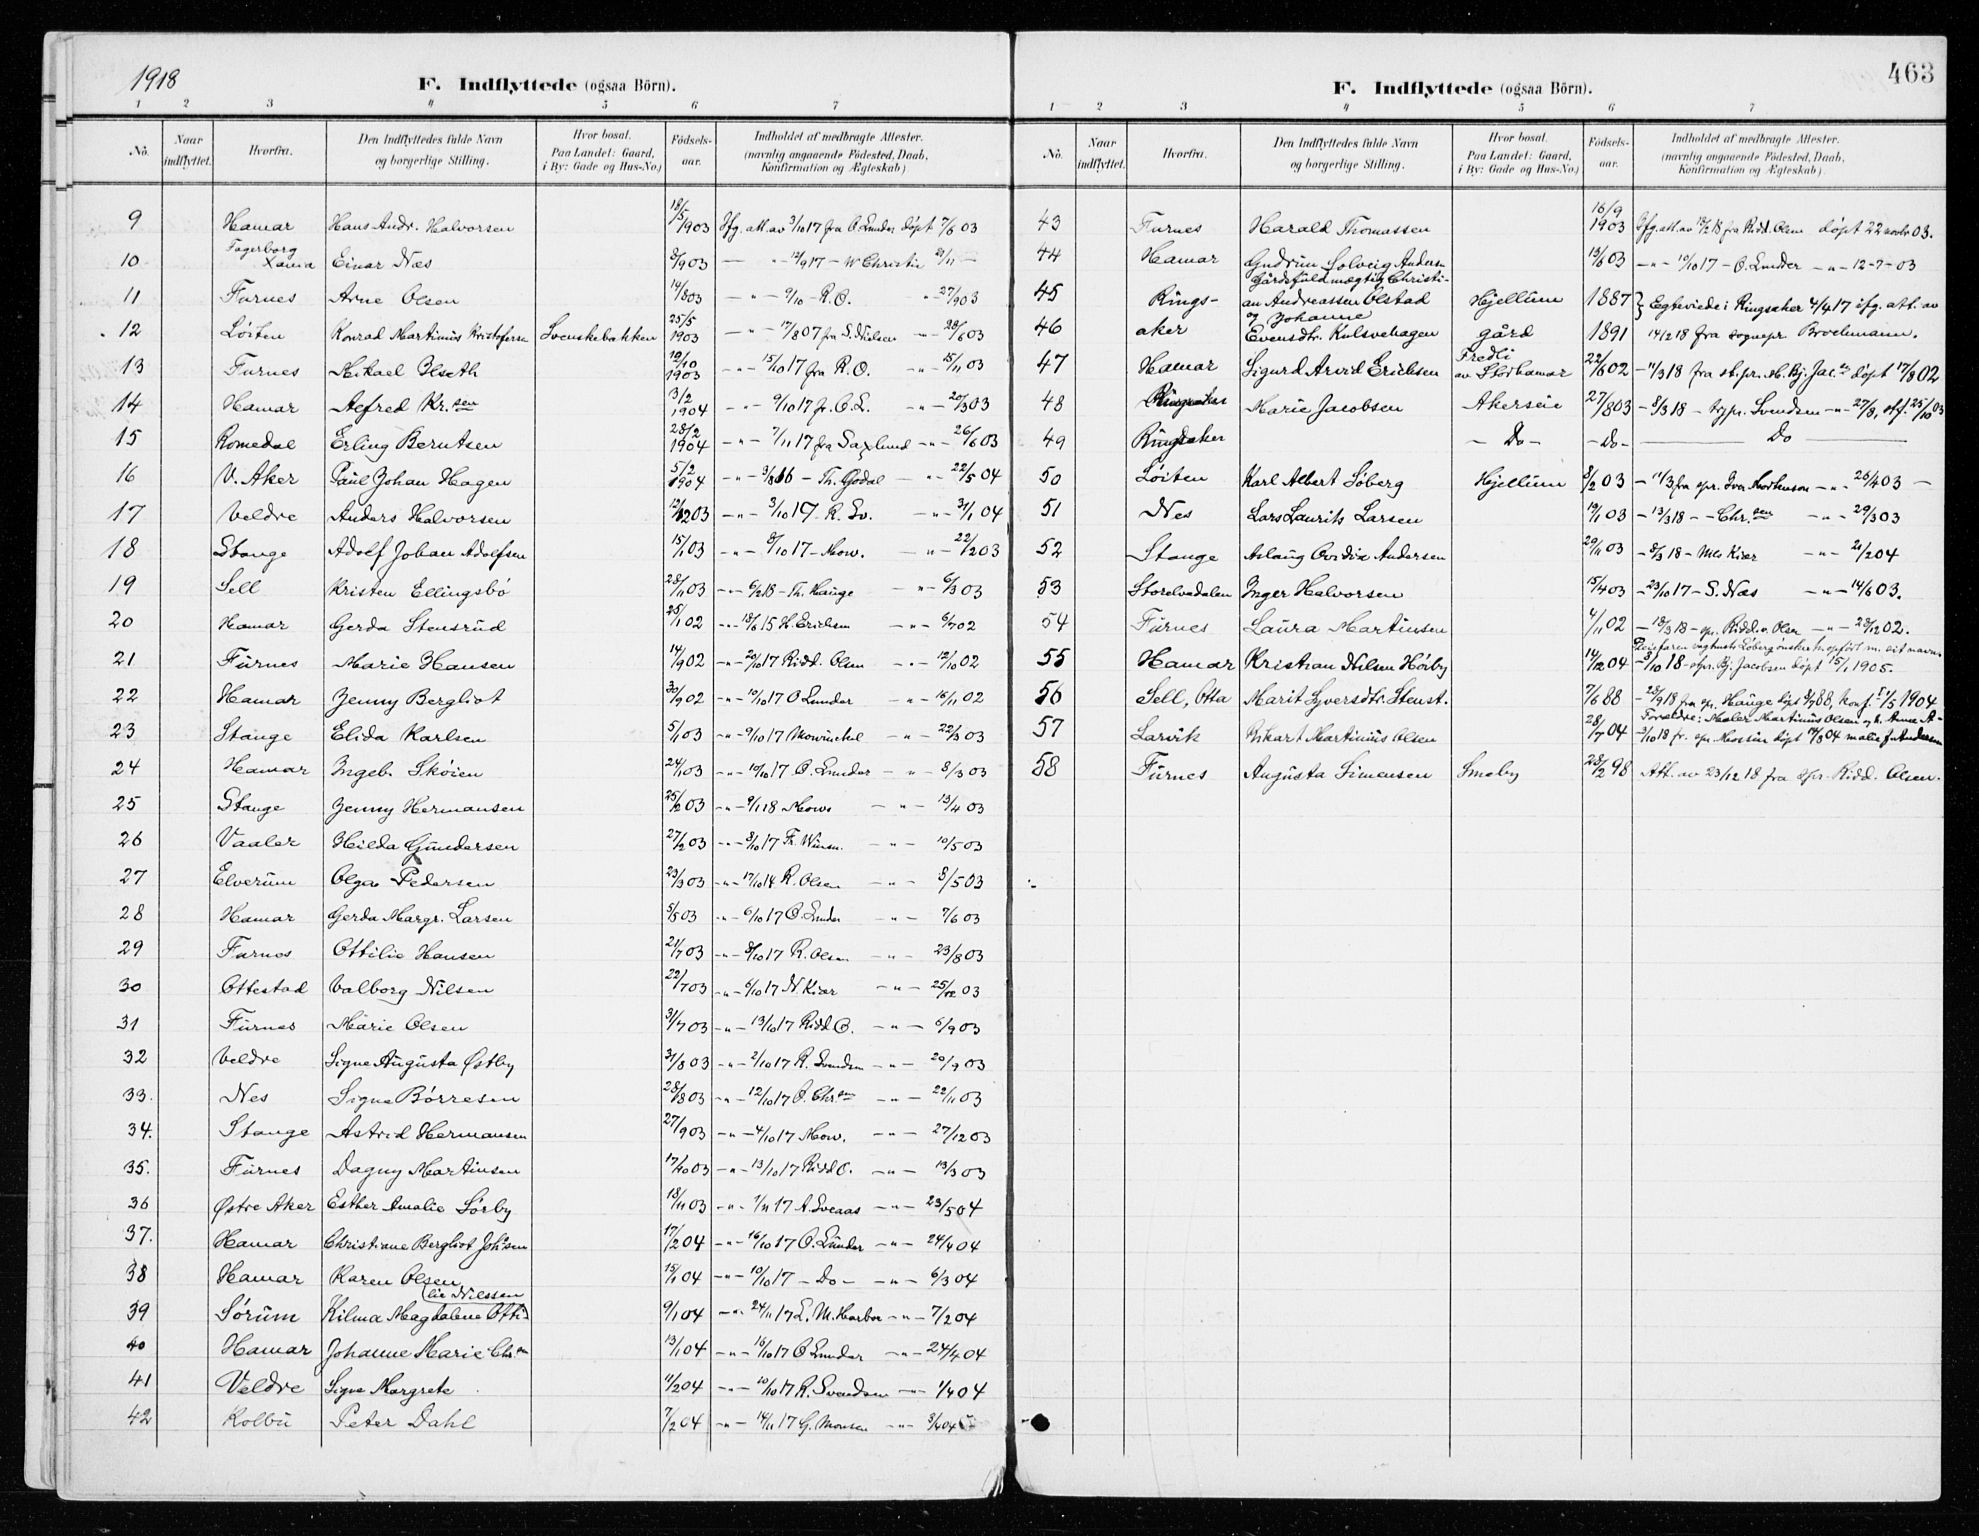 1918
F. Indflyttede (ogsaa Börn).
1 2 3 4 5 6 7
No. Naar indflyttet. Hvorfra. Den Indflyttedes fulde Navn og borgerlige Stilling. Hvor bosat. Paa Landet: Gaard, i By: Gade og Hus-No.) Födsels-aar. Indholdet af medbragte Attester. (navnlig angaaende Födested, Daab, Konfirmation og Ægteskab)
9 Hamar Hans Andr. Halvorsen 18/5 1903 Ifg. att. av 3/10 17 fra O. Lunder döpt 7/6 03
10 Fagerborg Xania Einar Næs 8/9 03 — " 12/9 17 — W Christie 21/11 —
11 Furnes Arne Olsen 14/8 03 — " — 9/10 — R.O. " 27/9 03
12 Löiten Konrad Martinius Kristofersen Svenskebakken 25/5 1903 — " — 17/8 07 fra S. Nielsen — " — 28/6 03
13 Furnes Mikael Olseth 12/10 1903 — " — 15/10 17 fra R.O. — " — 15/11 03
14 Hamar Alfred Kr.sen 3/2 1904 — " — 9/10 17 fr. O.L. — " — 20/3 03
15 Romedal Erling Berntsen 28/2 1904 — " — 7/11 17 fra Saxlund — " — 26/6 03
16 V. Aker Paul Johan Hagen 5/2 1904 — " — 3/8 16 — Th. Godal — " — 22/5 04
17 Veldre Anders Halvorsen 12/12 03 — " — 3/10 17 — R. Sv. — " — 31/1 04
18 Stange Adolf Johan Adolfsen 15/1 03 — " — 8/10 17 — Mow. — " — 22/2 03
19 Sell Kristen Ellingsbö 28/11 03 — " — 6/2 18 — Th. Hauge — " — 6/3 03
20 Hamar Gerda Stensrud 25/1 02 — " — 18/6 15 H. Erichsen — " — 6/7 02
21 Furnes Marie Hansen 14/9 02 — " — 20/10 17 Ridd. Olsen — " — 12/10 02
22 Hamar Jenny Bergliot 30/9 02 — " — 10/10 17 O Lunder — " — 16/11 02
23 Stange Elida Karlsen 5/1 03 — " — 9/10 17 Mowinckel — " — 22/3 03
24 Hamar Ingeb. Skoien 24/1 03 — " — 10/10 17 O. Lunder — " — 8/3 03
25 Stange Jenny Hermansen 25/2 03 — " — 9/1 18 Mow — " — 13/4 03
26 Vaaler Hilda Gundersen 27/2 03 — " — 8/10 17 Fr. — " — 10/5 03
27 Elverum Olga Pedersen 23/3 03 — " — 17/10 14 R. Olsen — " — 8/5 03
28 Hamar Gerda Margr. Larsen 5/5 03 — " — 6/10 17 O. Lunder — " — 7/6 03
29 Furnes Ottilie Hansen 21/7 03 — " — 8/10 17 R. Olsen — " — 23/8 03
30 Ottestad Valborg Nilsen 22/7 03 — " — 6/10 17 N. Kiær — " — 25/12 03
31 Furnes Marie Olsen 31/7 03 — " — 13/10 17 Ridd O. — " — 6/9 03
32 Veldre Signe Augusta Østby 31/8 03 — " — 2/10 17 R. Svendsen — " — 20/9 03
33. Nes Signe Börresen 28/8 03 — " — 12/10 17 O. Chr.sen — " — 22/11 03
34. Stange Astrid Hermansen 27/9 03 — " — 4/10 17 Mow. — " — 27/12 03
35. Furnes Dagny Martinsen 17/10 03 — " — 13/10 17 Ridd O. — " — 13/3 03
36 Østre Aker Esther Amalie Sörby 18/11 03 — " — 1/11 17 A. Sveaas — " — 23/5 04
37. Hamar Christiane Bergliot Joh.sen 17/2 04 — " — 16/10 17 O. Lunder — " — 24/4 04
38 Hamar Karen Olsen 15/1 04 — " — 10/10 17 — Do — — " — 6/3 04
39 Sörum Kilma Magdalene Otti- lie Nilssen 9/1 04 — " — 24/11 17 L. M. Harboe — " — 7/2 04
40 Hamar Johanne Marie Chr.sen 13/1 04 — " — 16/10 17 O Lunder — " — 24/4 04
41 Veldre Signe Margrete 11/2 04 — " — 20/10 17 R. Svendsen — " — 1/4 04
42 Kolbu Peter Dahl 7/2 04 — " — 14/11 17 G. Monsen — " — 3/4 04
463
F. Indflyttede (ogsaa Börn).
1 2 3 4 5 6 7
No. Naar indflyttet. Hvorfra. Den Indflyttedes fulde Navn og borgerlige Stilling. Hvor bosat. Paa Landet: Gaard, i By: Gade og Hus-No.) Födsels-aar. Indholdet af medbragte Attester. (navnlig angaaende Födested, Daab, Konfirmation og Ægteskab)
43 Furnes Harald Thomassen 16/9 1903 Ifg. att. av 18/2 18 fra Ridd. Olsen döpt 22 novbr 03.
44 Hamar Gudrun Solveig Andersen 13/6 03 — " — 10/10 17 — O. Lunder — " — 12-7-03
45 Rings- Gårdsfuldmægtig Christi- an Andreassen Olstad Hjellum 1887 } Egteviede i Ringsaker 4/4 17 ifg. att. av
46 aker og Johanne Evensdtr. Kulsvehagen gård 1891 14/2 18 fra sognepr. Brochmann.
47 Hamar Sigurd Arvid Erichsen Fredli av Storhamar 22/6 02 — 11/3 18 fra st.pr. M. Bj. Jac.sen döpt 17/8 02
48 Ringsaker Marie Jacobsen Akerseie 27/8 03 — 8/3 18 — sgpr. Svendsen — " — 27/8, stf. 25/10 03
49 Ringsaker — Do — — Do — — Do —
50 Löiten Karl Albert Söberg Hjellum 8/2 03 — 11/3 fra spr. Iver Mortenson — " — 26/4 03 —
51 Nes Lars Laurits Larsen 19/1 03 — 13/3 18 — Chr.sen — " — 29/3 03
52 Stange Aslaug Ovidia Andersen 29/11 03 — 8/3 18 — Kiær — " — 21/2 04
53 Storelvedalen Inger Halvorsen 15/4 03 — 23/10 17 — S. Næs — " — 14/6 03.
54 Furnes Laura Martinsen 4/11 02 — 18/3 18 — spr. Ridd. v. Olsen — " — 28/12 02.
55 Hamar Kristian Nilsen Hörby 14/12 04 Pleiefaren Söberg önsker h. opfört m. sit navn — 8/10 18 — spr. Bj. Jacobsen döpt 15/1 1905.
56 Sell, Otta Marit Syversdtr. Stenst. 7/6 88 — 28/9 18 fra spr. Hauge döpt 8/7 88, konf. 1/5 1904
57 Larvik Rikart Martinius Olsen 28/7 04 Forældre: Maler Martinius Olsen og h. Anna A- — 3/10 18 fr. spr. döpt 17/8 04 malie f. Andersen
58 Furnes Augusta Simensen Smeby 28/2 98 Att. av 23/12 18 fra spr. Ridd. Olsen.